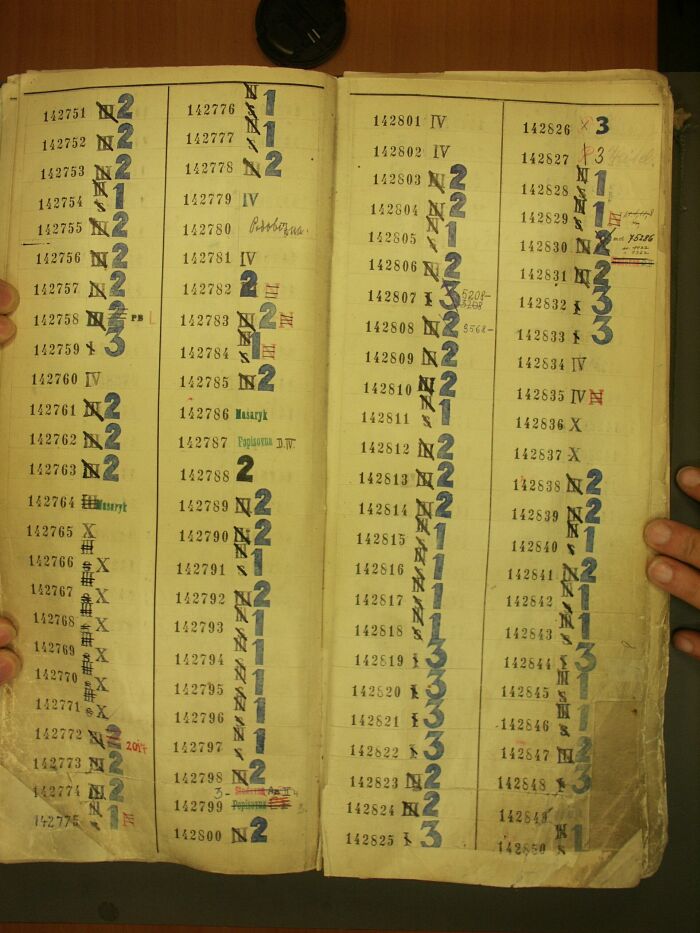 142751 2
142752 2
142753 2
142754 1
142755 2
142756 2
142757 2
142758 2 PB
142759 3
142760 IV
142761 2
142762 2
142763 2
142764 Masaryk
142765 X
142766 X
142767 X
142768 X
142769 X
142770 X
142771 X
142772 2
142773 2
142774 2
142775 1 IV
142776 1
142777 1
142778 2
142779 IV
142780
142781 IV
142782 2 III
142783 2 III
142784 1 III
142785 2
142786 Masaryk
142787 Popisovna D.IV
142788 2
142789 2
142790 2
142791 1
142792 2
142793 1
142794 1
142795 1
142796 1
142797 1
142798 2
142799 Popisovna
142800 2
142801 IV
142802 IV
142803 2
142804 2
142805 1
142806 2
142807 3 5208-
142808 2 3568-
142809 2
142810 2
142811 1
142812 2
142813 2
142814 2
142815 1
142816 1
142817 1
142818 1
142819 3
142820 3
142821 3
142822 3
142823 2
142824 2
142825 3
142826 X 3
142827 3
142828 1
142829 1 III
142830 2 75286
142831 2
142832 3
142833 3
142834 IV
142835 IV III
142836 X
142837 X
142838 2
142839 2
142840 1
142841 2
142842 1
142843 1
142844 3
142845 1
142846 1
142847 2
142848 3
142849
142850 1